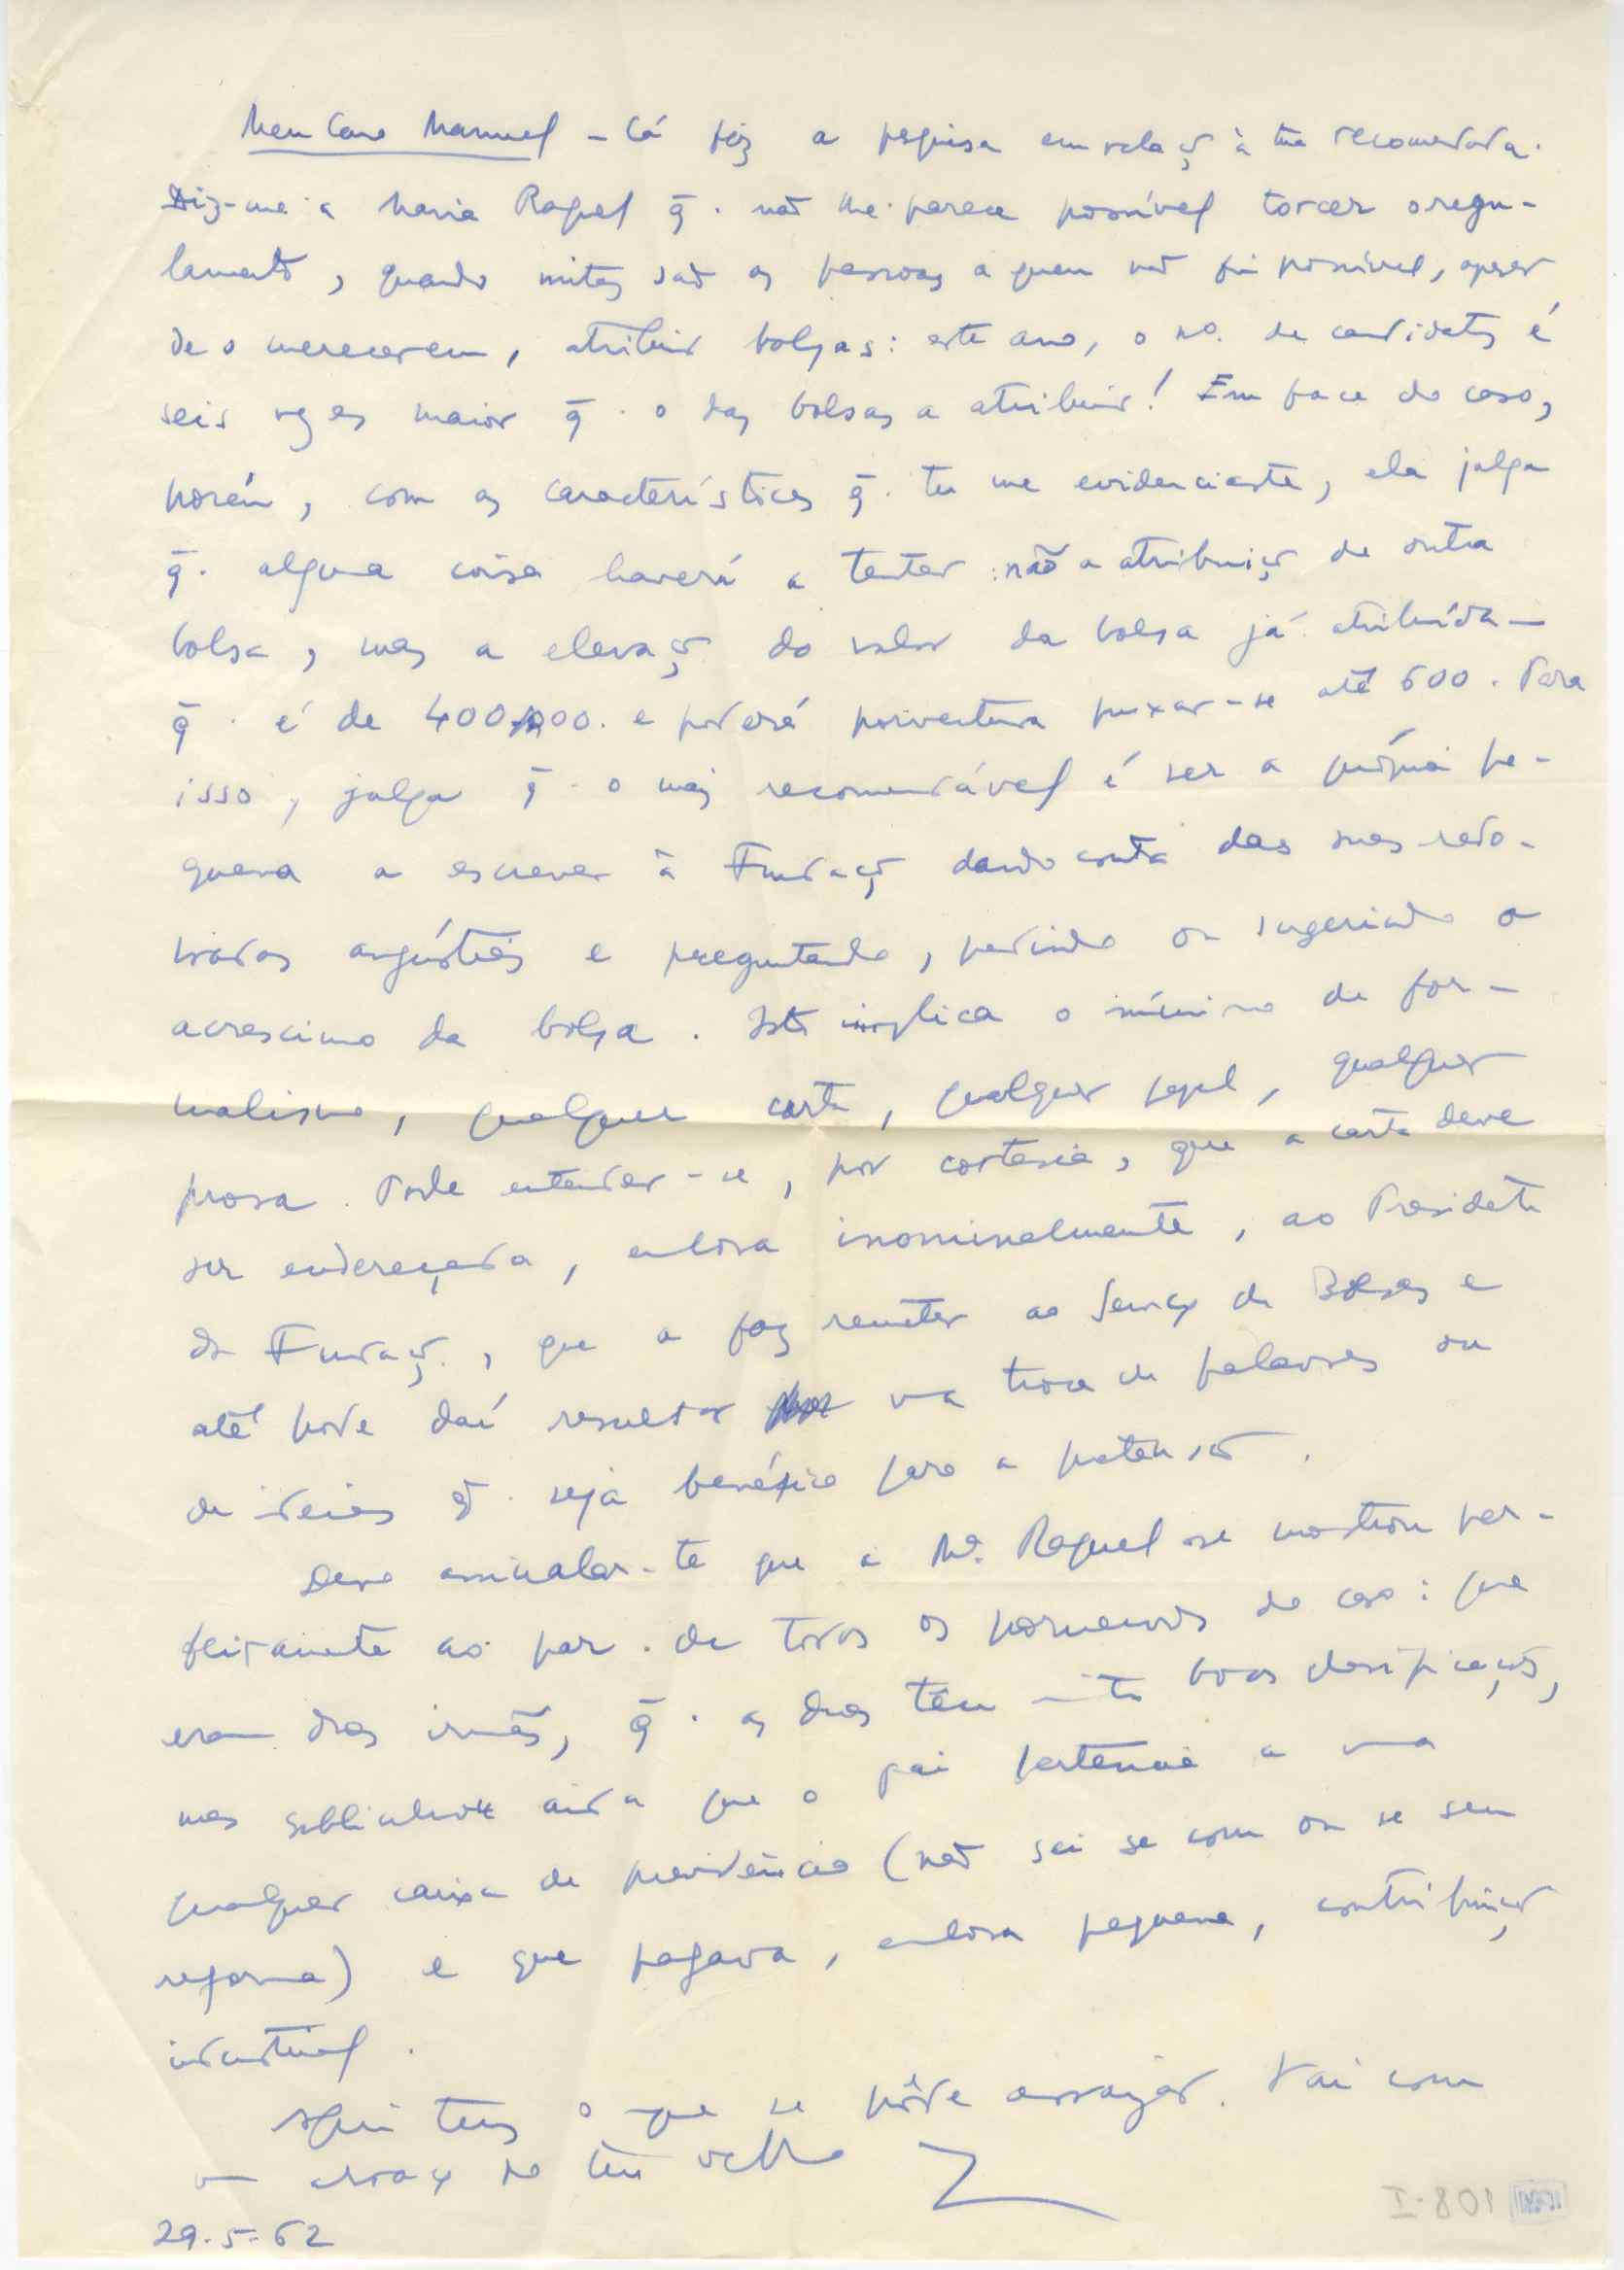 Meu Caro Manuel – Cá fiz a pesquisa em relaç̃ à tua recomendada.
Diz-me a Maria Raquel q̃. não lhe parece possível torcer o regu-
lamento, quando mitas são as pessoas a quem não foi possível, apesar
de o merecerem, atribuir bolsas: este ano, o nº. de candidatos é
seis vezes maior q̃. o das bolsas a atribuir! Em face do caso,
porém, com as características q̃. tu me evidenciaste, ela julga
q̃. alguma coisa haverá a tentar: não a atribuiç̃ de outra
bolsa, mas a elevaç̃ do valor da bolsa já atribuída –
q̃. é de 400 00. e poderá porventura puxar-se até 600. Para
isso, julga q̃. o mais recomendável é ser a própria pe-
quena a escrever à Fundaç̃ dando conta das suas redo-
bradas angústias e preguntando, pedindo ou sugerindo o
acrescimo da bolsa. Isto implica o mínimo de for-
malismo, qualquer carta, qualquer papel, qualquer
prosa. Pode entender-se, por cortesia, que a carta deve
ser endereçada, embora inominalmente, ao Presidente
da Fundaç̃., que a faz remeter ao Serviço de Bolsas e
até pode daí resultar uma troca de palavras ou
de ideias q̃. seja benéfica para a pretensão.
Devo assinalar-te que a Mª. Raquel se mostrou per-
feitamente ao par. de todos os pormenores do caso: que
eram duas irmãs, q̃. as duas têm mito boas classificações,
mas sublinhou ainda que o pai pertencia a uma
qualquer caixa de previdência (não sei se com ou se sem
reforma) e que pagava, embora pequena, contribuiç̃
industrial.
Aqui tens o que se pôde arranjar. Vai com
um abraço do teu velho
29-5-62
I-801